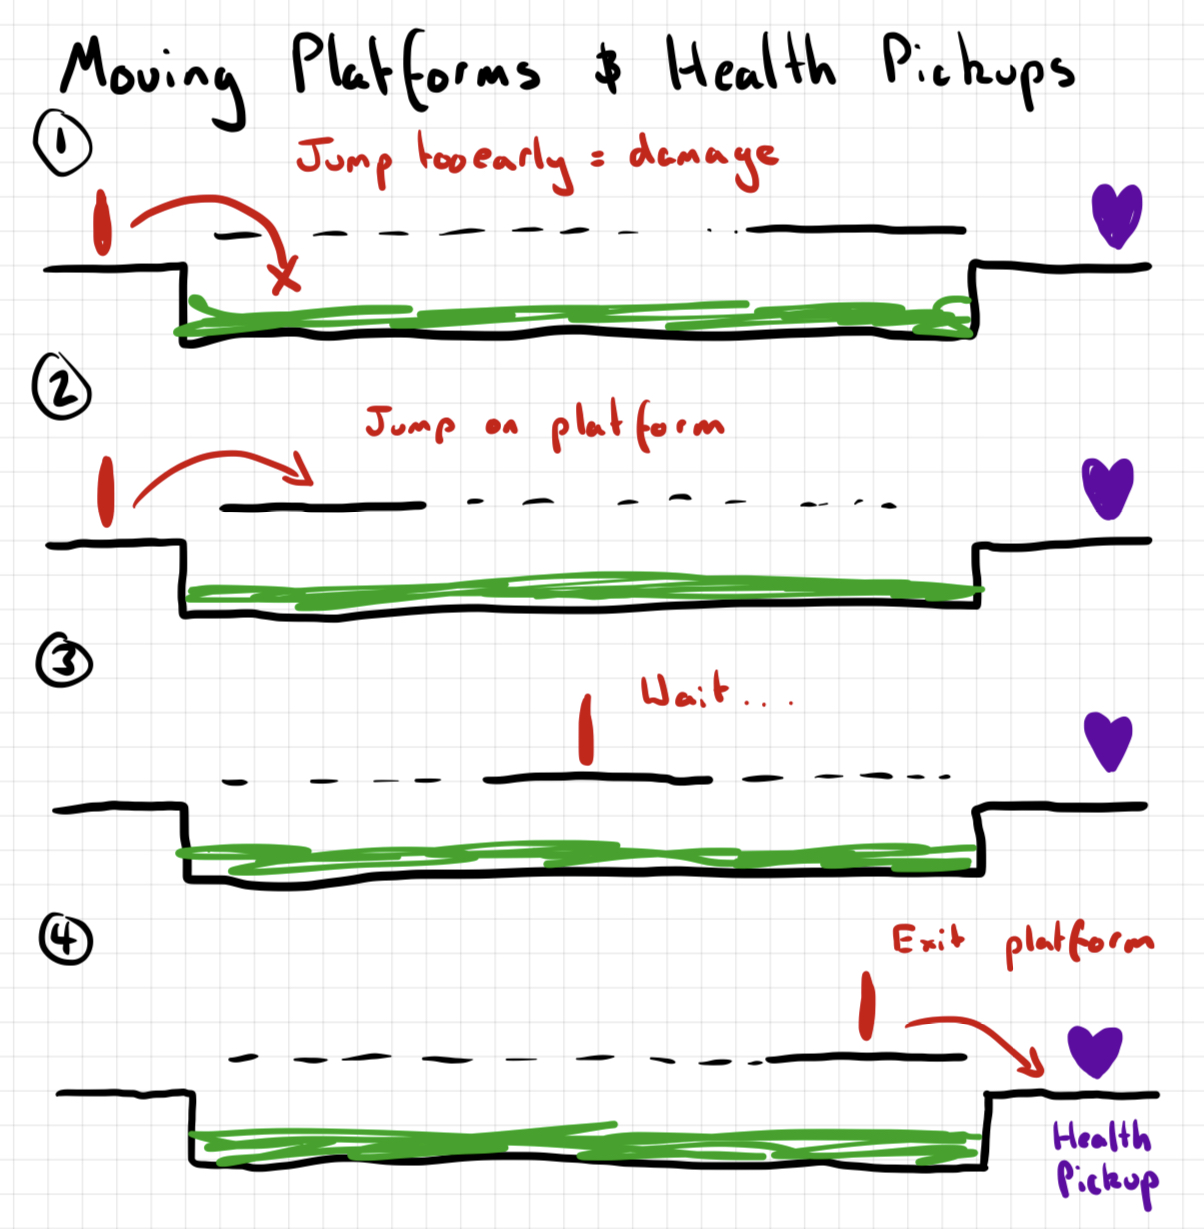 Moving Platforms & Health Pickups
1
Jump too early = damage
2
Jump on platform
3
Wait...
4
Exit platform
Health
Pickup